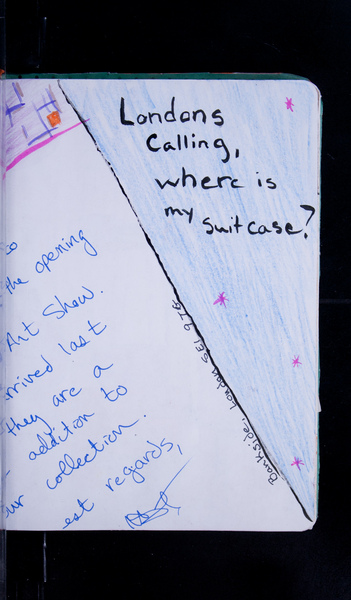 Londons
Calling,
where is
my suitcase?
Bankside, London SE1 9TG
so
the opening
Art Show.
rrived last
they are a
addition to
ur collection.
est regards,